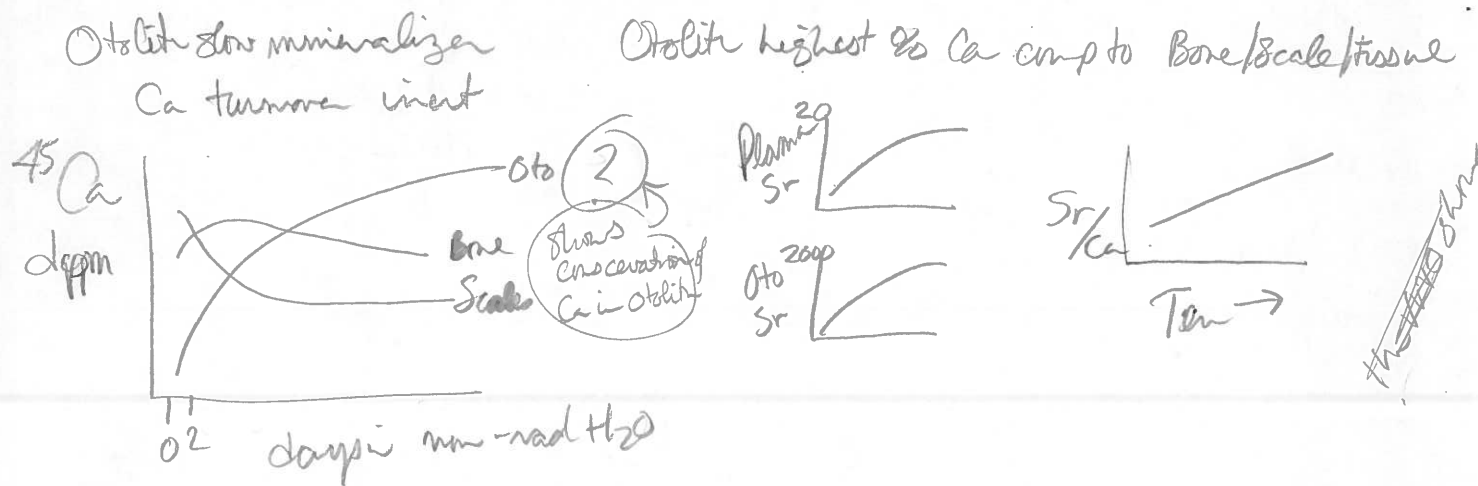 Otolith slow mineralizer
Ca turnover inert
Otolith highest % Ca comp to Bone/Scale/tissue
45Ca
dppm
Oto
2
Bone
Scales
shows
conservation of
Ca in Otolith
0 2
days in non-rad H2O
Plasma
Sr
20
Oto
Sr
2000
Sr/Ca
Tem →